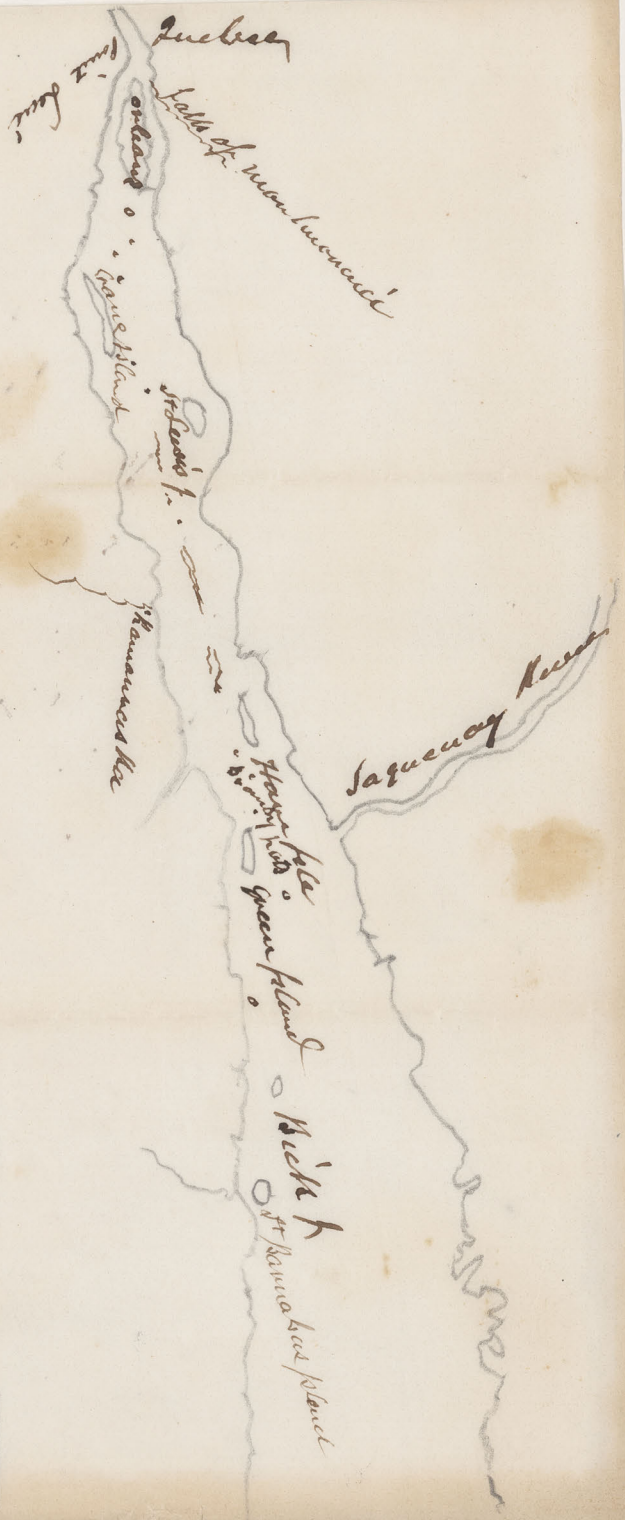 Quebec
Point
Point
Falls of Montmorenci
Orleans
Crane Island
St Louis
Kamauraska
Saguenay River
Hare Isle
Green Island
Bick I
St Barnabas Island